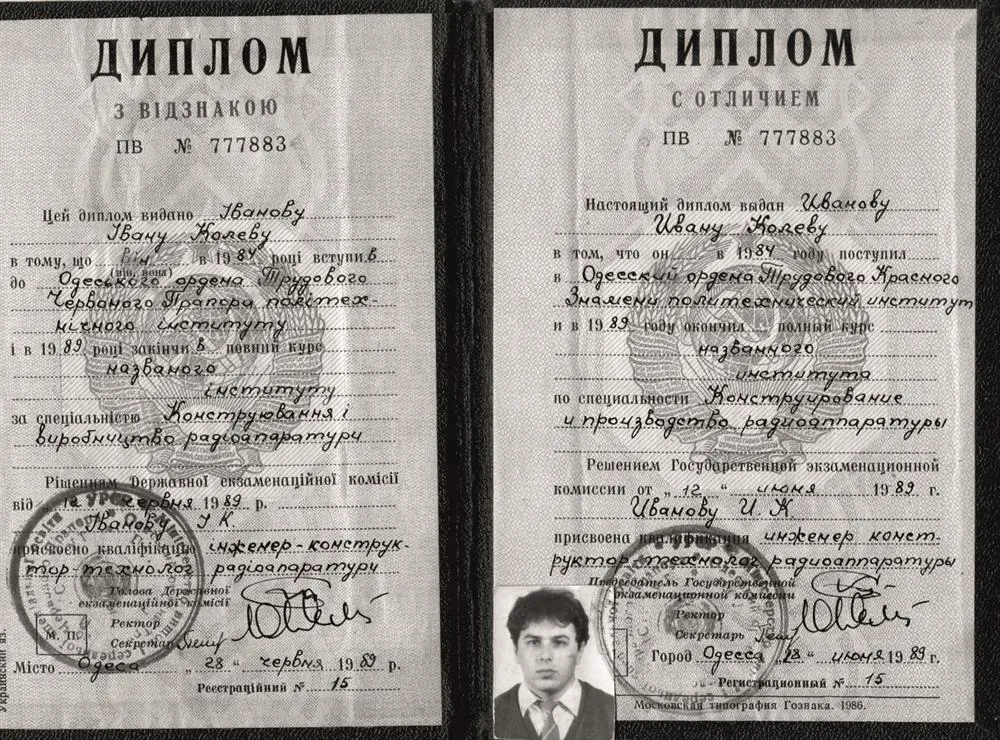 ДИПЛОМ
З ВІДЗНАКОЮ
ПВ № 777883
Цей диплом видано Іванову
Івану Колеву
в тому, що він в 1984 році вступив
(він, вона)
до Одеського ордена Трудового
Червоного Прапора політех-
нічного інституту
і в 1989 році закінчив повний курс
названого
інституту
за спеціальністю Конструювання і
виробництво радіоапаратури
Рішенням Державної екзаменаційної комісії
від „12 червня 1989 р.
Іванову І. К.
присвоєно кваліфікацію инженер-конструк-
тор-технолог радіоапаратури
Голова Державної
екзаменаційної комісії
Ректор
М. П. Секретар
Місто Одеса „28“ червня 1989 р.
Реєстраційний № 15
Украинский яз.
ДИПЛОМ
С ОТЛИЧИЕМ
ПВ № 777883
Настоящий диплом выдан Иванову
Ивану Колеву
в том, что он в 1984 году поступил
в Одесский ордена Трудового Красного
Знамени политехнический институт
и в 1989 году окончил полный курс
названного
института
по специальности Конструирование
и производство радиоаппаратуры
Решением Государственной экзаменационной
комиссии от „12“ июня 1989 г.
Иванову И. К.
присвоена квалификация инженер конст-
руктор-технолог радиоаппаратуры
Председатель Государственной
экзаменационной комиссии
Ректор
Секретарь
Город Одесса „28“ июня 1989 г.
Регистрационный № 15
Московская типография Гознака. 1986.